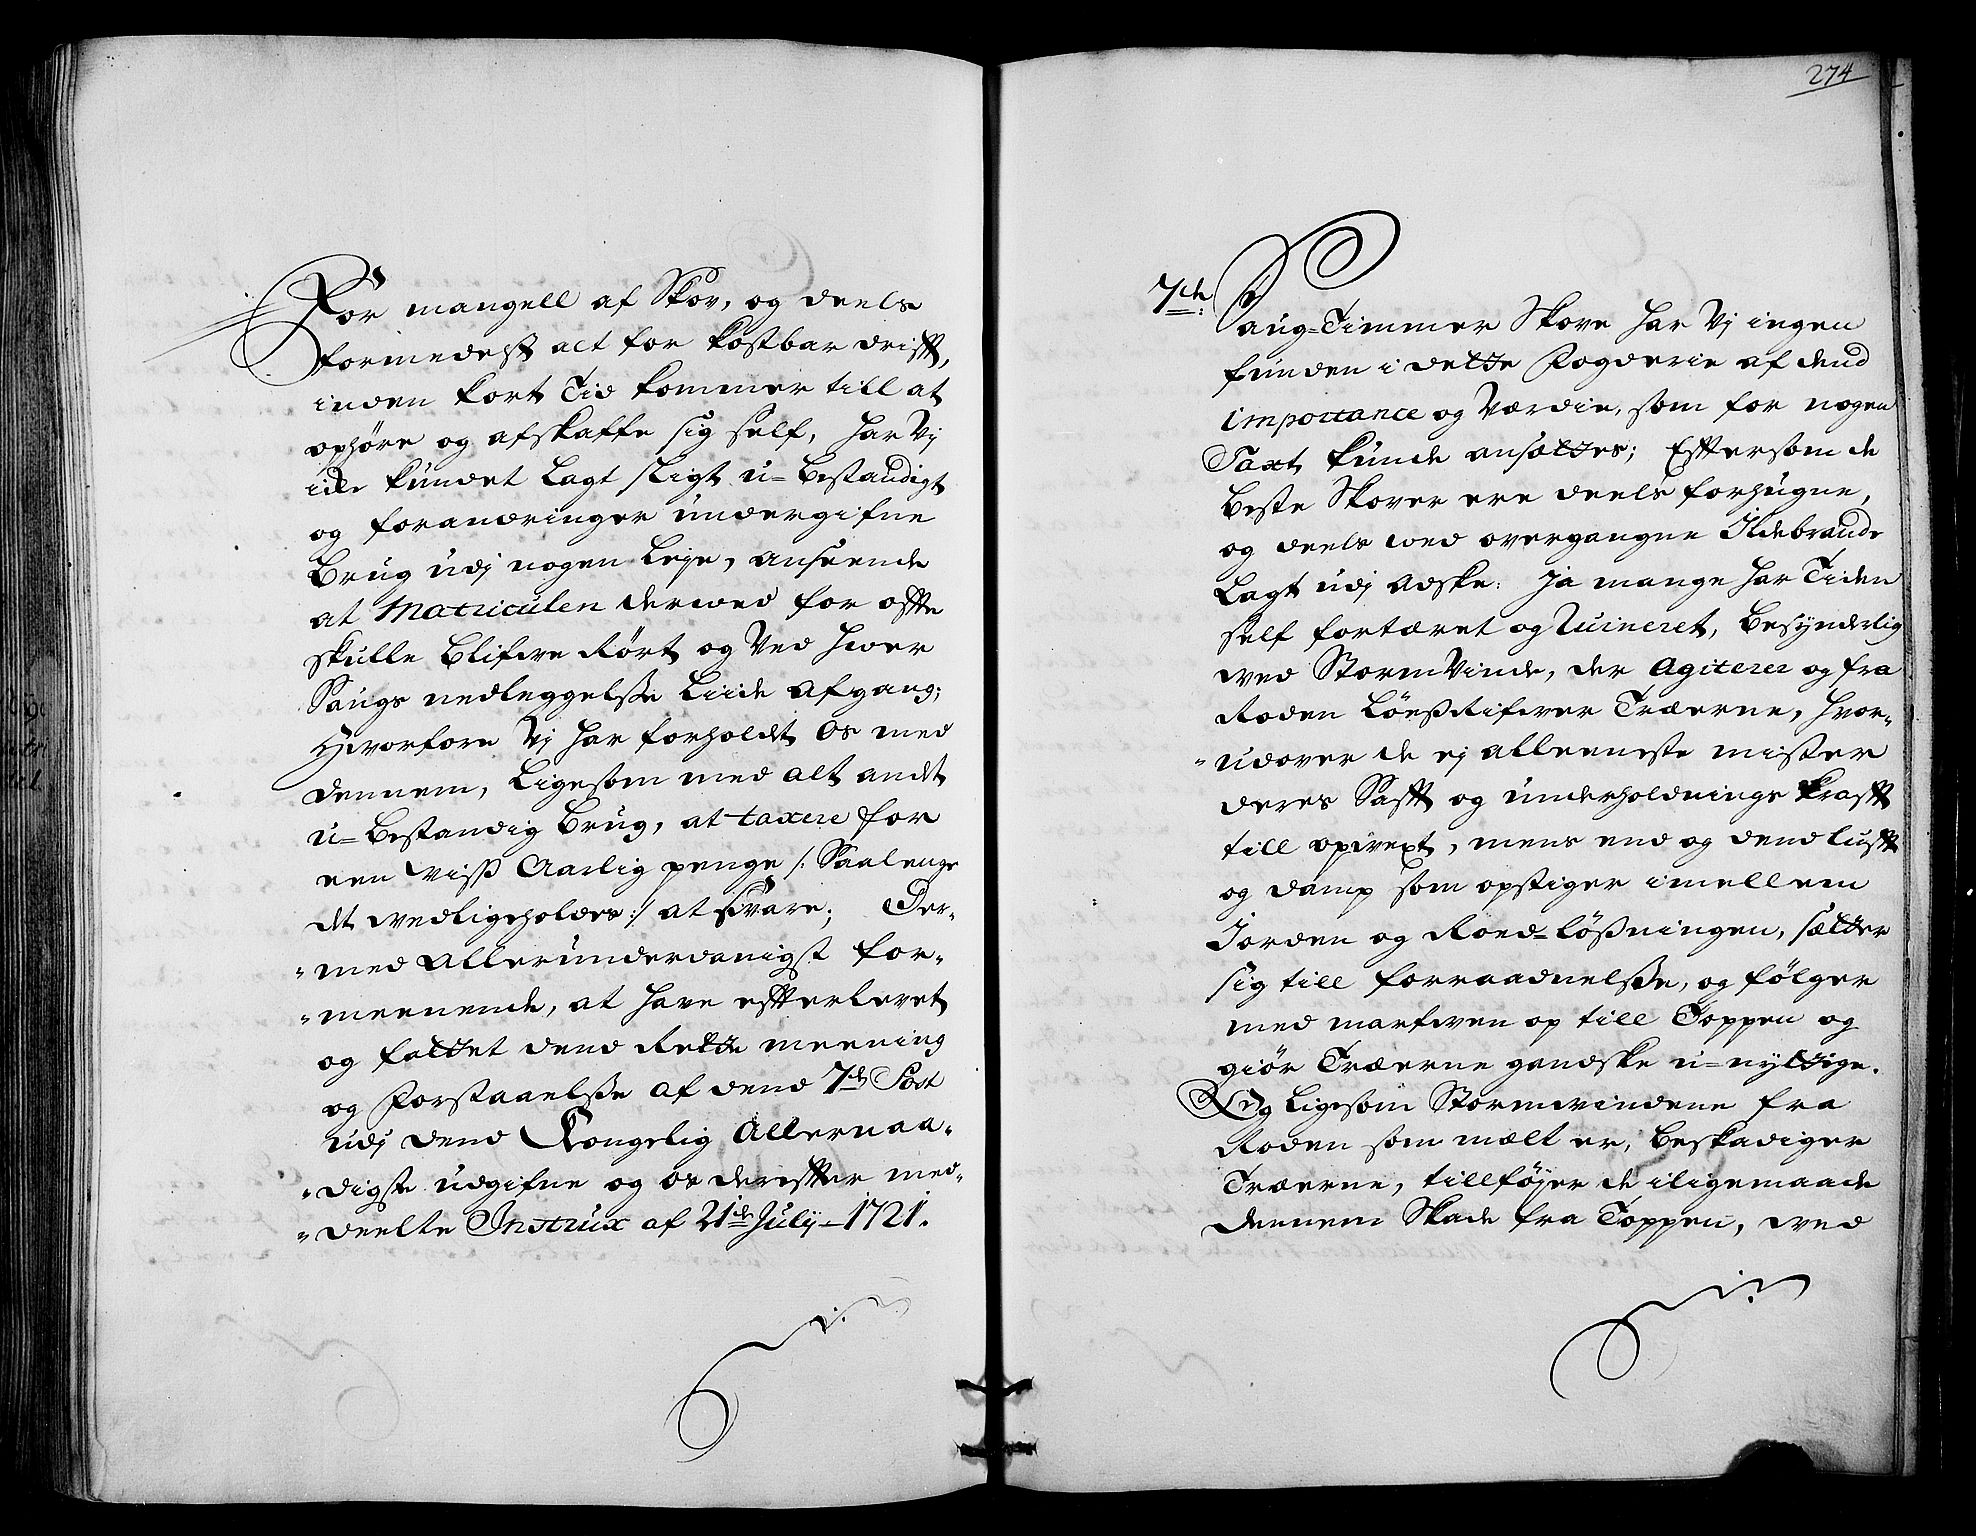 For mangell af Skov, og deels
formedelst alt for kostbar drifft,
inden kort Tid kommer till at
ophøre og afskaffe sig self, har Vj
icke kundet lagt sligt u=bestandigt
og forandringer undergifne
Brug udj nogen leje, anseende
at Matriculen derved for offte
skulle blifwe Rørt og Ved hwer
Saugs nedleggelsse liide afgang;
Hvorfore Vj har forholdt os med
dennem, ligesom med alt andt
u=bestandig brug, at taxere for
een wiss Aarlig penge /: Saalenge
dt wedligeholdes :/ at svare; Der-
"med Allerunderdanigst for-
"meenende, at have effterlevet
og fattet dend Rette meening
og Forstaaelsse af dend 7de Post
udj dend Kongelig Allernaa-
"digste udgifne og os dereffter med-
"deelte Instrux af 21de July 1721.
274
7de: Saug=Timmer Skove har Vj ingen
funden i dette Fogderie af dend
importance og Værdie, som for nogen
Taxt kunde ansættes; Efftersom de
beste Skover ere deels forhugne,
og deels wed overgangne Ildebrande
lagt udj Adske: Ja mange har Tiden
self fortæret og Ruineret, besynderlig
wed StormVinde, der Agiterer og fra
Roden løessRifwer Træerne, hvor-
"udover de ej alleeneste misser
deres Safft og underholdnings krafft
till opwext, mens end og dend lufft
og damp som opstiger imellem
Jorden og Roed=løssningen, sætter
sig till forraadnelsse, og følger
med marfwen op till Toppen og
giør Træerne gandske u=nyttige.
Og ligesom Stormwindene fra
Roden som mælt er, beskadiger
Træerne, tillføjer de iligemaade
dennem Skade fra Toppen, wed